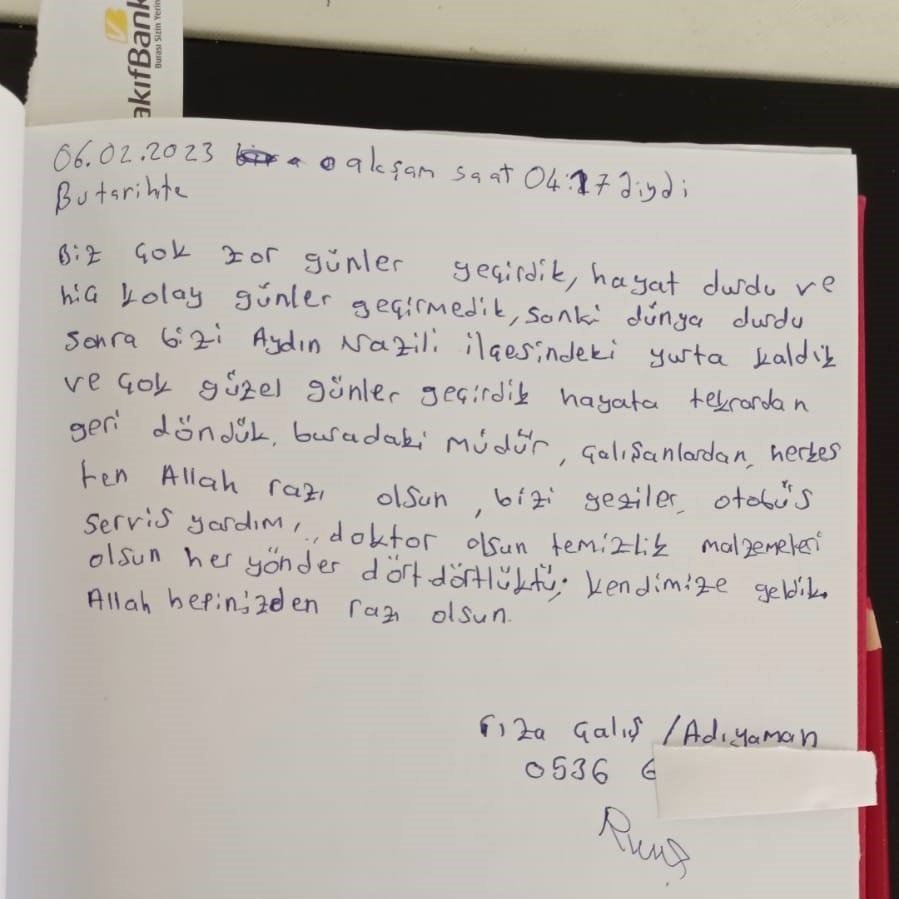 akıfBank
Burası Sizin Yerin
06.02.2023 o akşam saat 04:17 diydi
Bu tarihte
Biz çok zor günler geçirdik, hayat durdu ve
hiç kolay günler geçirmedik, sanki dünya durdu
sonra bizi Aydın Nazili ilçesindeki yurta kaldık
ve çok güzel günler geçirdik hayata tekrardan
geri döndük, buradaki müdür, çalışanlardan, herkes
ten Allah razı olsun, bizi geziler, otobüs
servis yardım, doktor olsun temizlik malzemeleri
olsun her yönder dört dörtlüktü; kendimize geldik.
Allah hepinizden razı olsun.
rıza Çalış / Adıyaman
0536 6